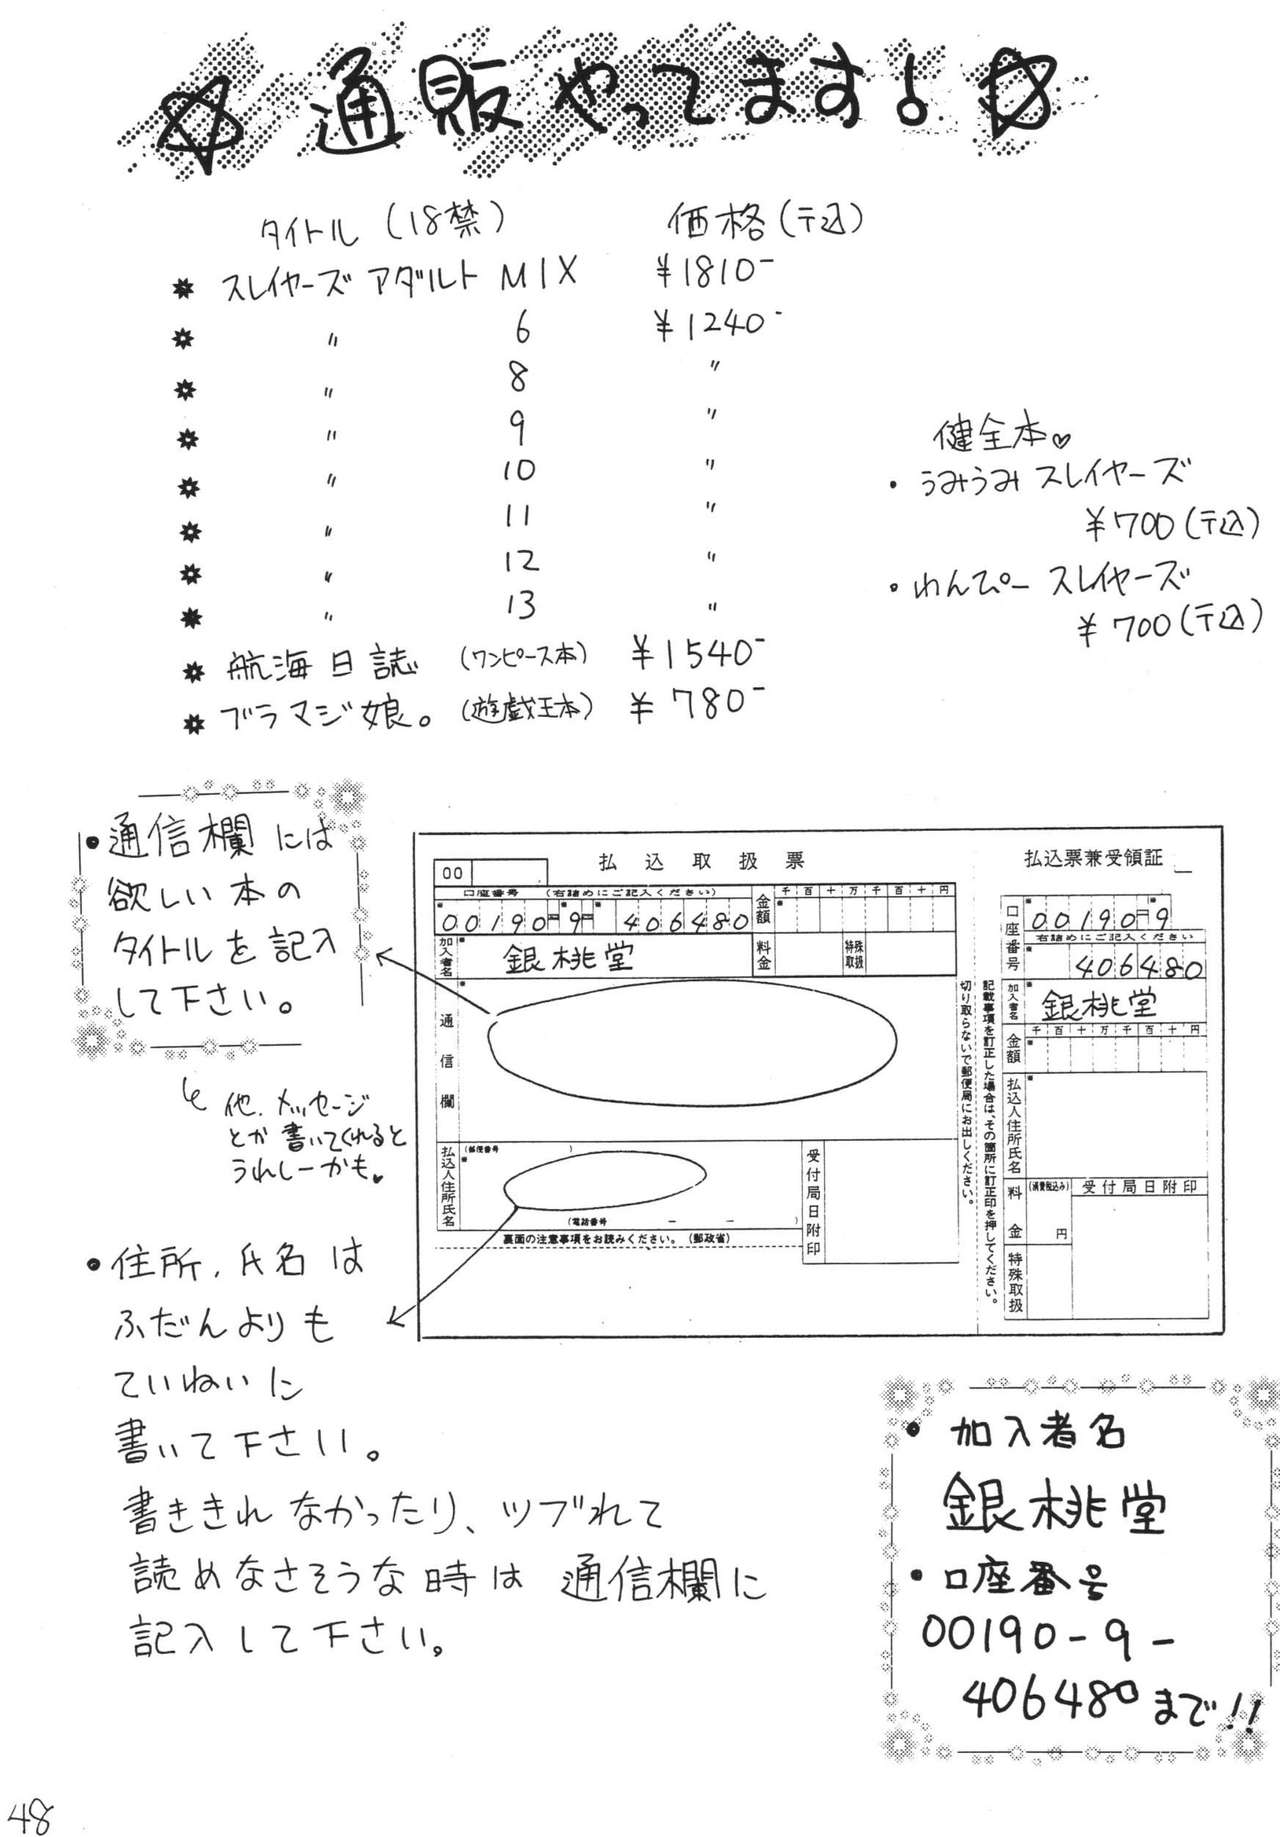 ☆通販やってます!☆
タイトル(18禁) 価格(〒込)
スレイヤーズ アダルト MIX ¥1810-
〃 6 ¥1240-
〃 8 〃
〃 9 〃
〃 10 〃
〃 11 〃
〃 12 〃
〃 13 〃
航海日誌 (ワンピース本) ¥1540-
ブラマジ娘。(遊戯王本) ¥780-
健全本♡
・うみうみ スレイヤーズ
¥700(〒込)
・わんぴー スレイヤーズ
¥700(〒込)
・通信欄には
欲しい本の
タイトルを記入
して下さい。
他、メッセージ
とか書いてくれると
うれしーかも♥
・住所、氏名は
ふだんよりも
ていねいに
書いて下さい。
書ききれなかったり、ツブれて
読めなさそうな時は 通信欄に
記入して下さい。
00 払込取扱票
口座番号 (右詰めにご記入ください)
00190 9 406480
金額 千百十万千百十円
加入者名 銀桃堂
料金 特殊取扱
通信欄
払込人住所氏名 (郵便番号 )
(電話番号 — — )
受付局日附印
裏面の注意事項をお読みください。(郵政省)
切り取らないで郵便局にお出しください。
記載事項を訂正した場合は、その箇所に訂正印を押してください。
払込票兼受領証
口座番号 00190 9
右詰めにご記入ください
406480
加入者名 銀桃堂
金額 千百十万千百十円
払込人住所氏名
料金 (消費税込み) 円
受付局日附印
特殊取扱
・加入者名
銀桃堂
・口座番号
00190-9-
406480まで!!
48